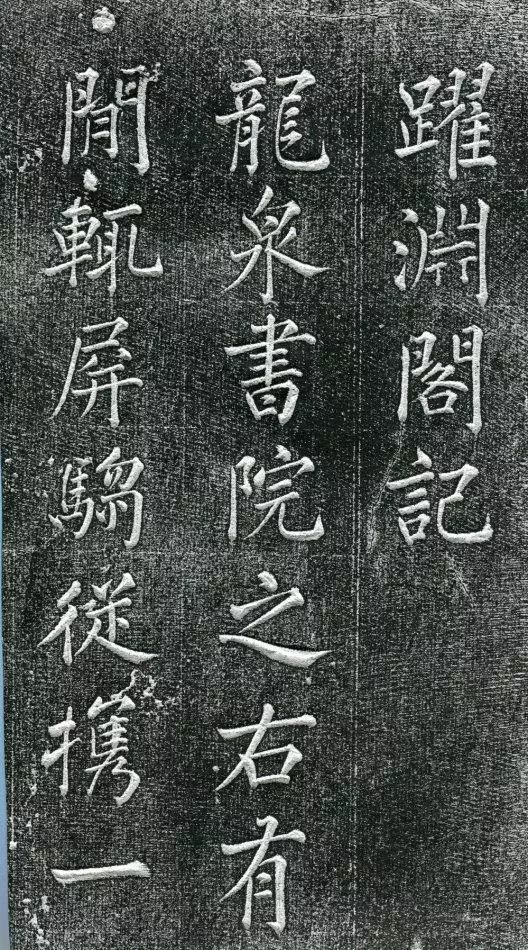 躍淵閣記
龍泉書院之右有
閒輒屏騶從擕一